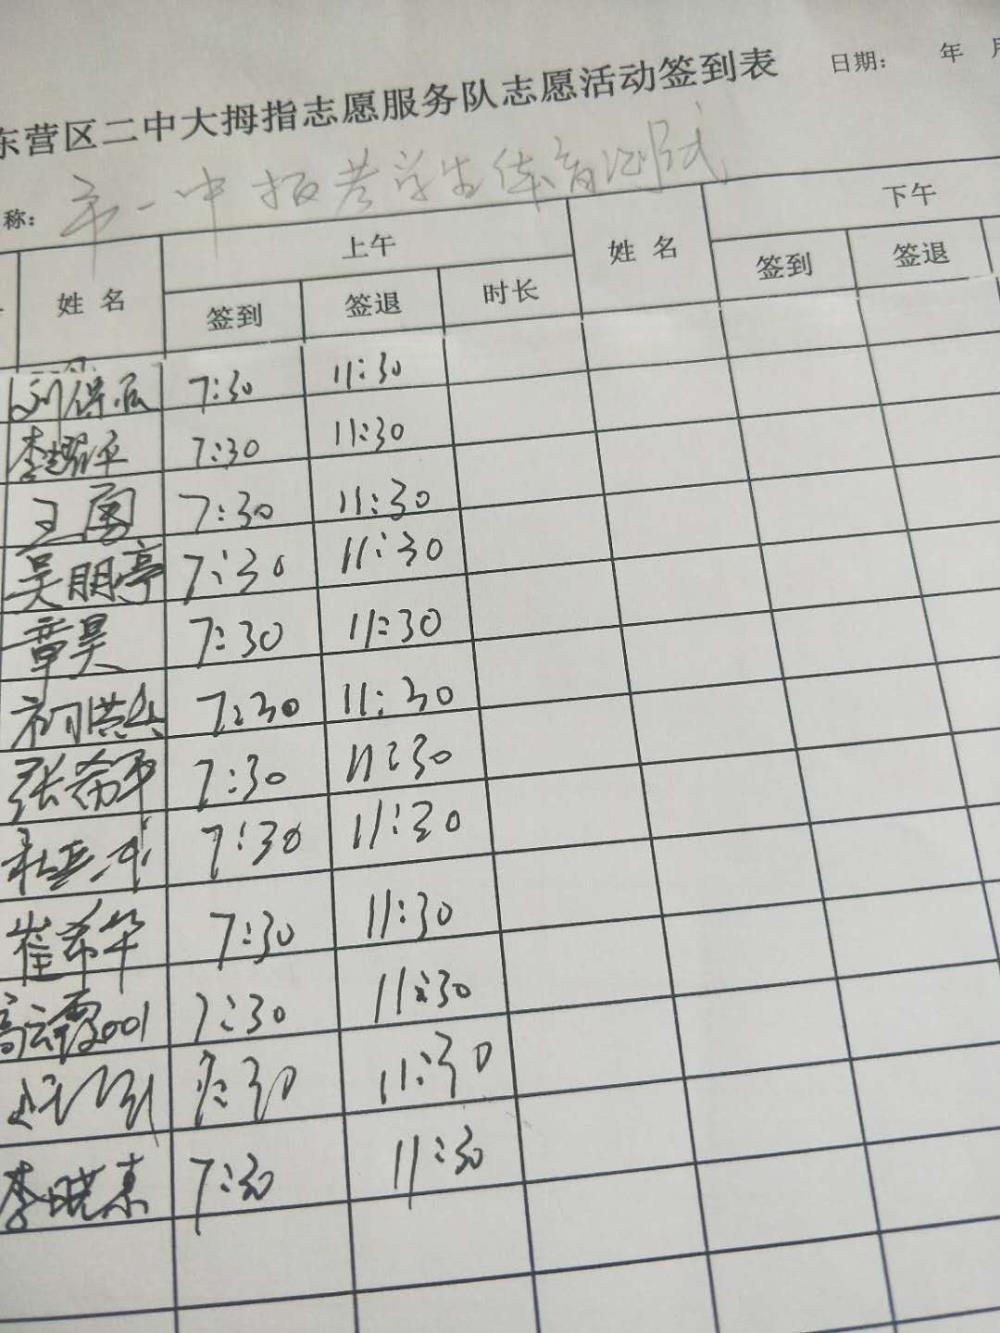 东营区二中大拇指志愿服务队志愿活动签到表 日期： 年 月
称： 市一中报考学生体育测试
姓 名 上午 姓 名 下午
签到 签退 时长 签到 签退
刘 7:30 11:30
李耀平 7:30 11:30
王勇 7:30 11:30
吴朋亭 7:30 11:30
章昊 7:30 11:30
初洪 7:30 11:30
张希平 7:30 11:30
杜 7:30 11:30
崔希华 7:30 11:30
高云霞001 7:30 11:30
7:30 11:30
李晓素 7:30 11:30